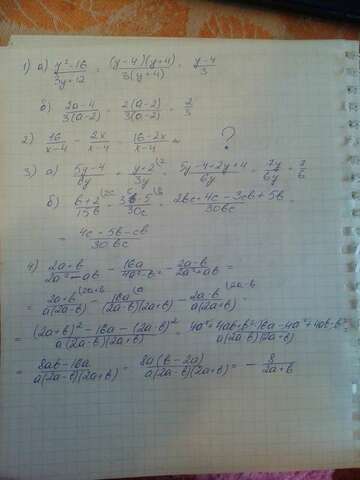 1) а) (y²-16)/(3y+12) = ((y-4)(y+4))/(3(y+4)) = (y-4)/3
б) (2a-4)/(3(a-2)) = (2(a-2))/(3(a-2)) = 2/3
2) 16/(x-4) - 2x/(x-4) = (16-2x)/(x-4) = ?
3) а) (5y-4)/(6y) + (y+2)/(3y) (2 = (5y-4+2y+4)/(6y) = 7y/(6y) = 7/6
б) (b+2)/(15b) (2c - (3c-5)/(30c) (b = (2bc+4c-3cb+5b)/(30bc) =
= (4c-5b-cb)/(30bc)
4) (2a+b)/(2a²-ab) - 16a/(4a²-b²) - (2a-b)/(2a²+ab) =
= (2a+b)/(a(2a-b)) (2a+b - 16a/((2a-b)(2a+b)) (a - (2a-b)/(a(2a+b)) (2a-b =
= ((2a+b)²-16a-(2a-b)²)/(a(2a-b)(2a+b)) = (4a²+4ab+b²-16a-4a²+4ab-b²)/(a(2a-b)(2a+b))
= (8ab-16a)/(a(2a-b)(2a+b)) = (8a(b-2a))/(a(2a-b)(2a+b)) = -8/(2a+b)